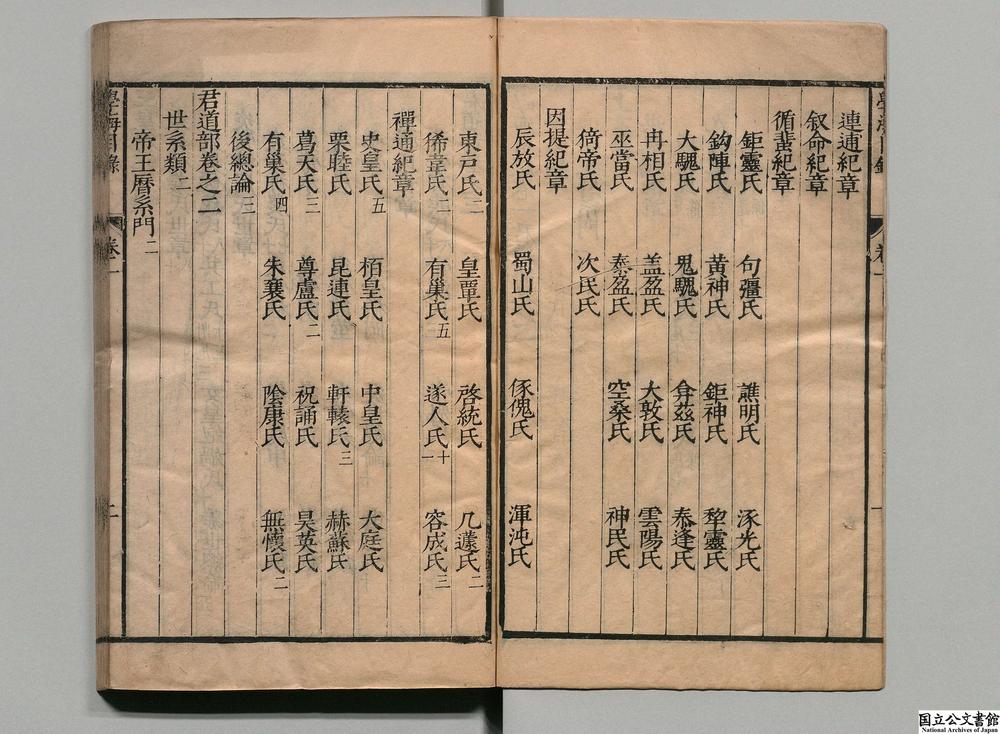 連通紀章
叙命紀章
循蜚紀章
鉅靈氏 句彊氏 譙明氏 涿光氏
鈎陣氏 黄神氏 鉅神氏 犂靈氏
大騩氏 鬼騩氏 弇茲氏 泰逢氏
冉相氏 盖盈氏 大敦氏 雲陽氏
巫當氏 泰盈氏 空桑氏 神民氏
倚帝氏 次民氏
因提紀章
辰放氏 蜀山氏 豗傀氏 渾沌氏
東戸氏二 皇覃氏 啓統氏 几蘧氏二
狶韋氏二 有巢氏五 遂人氏十一 容成氏三
禪通紀章
史皇氏五 栢皇氏 中皇氏 大庭氏
栗睦氏 昆連氏 軒轅氏三 赫蘇氏
葛天氏三 尊盧氏二 祝誦氏 昊英氏
有巢氏四 朱襄氏 陰康氏 無懷氏二
後總論三
君道部卷之二
世系類二
帝王曆系門二
學海目錄 卷一 二
国立公文書館
National Archives of Japan